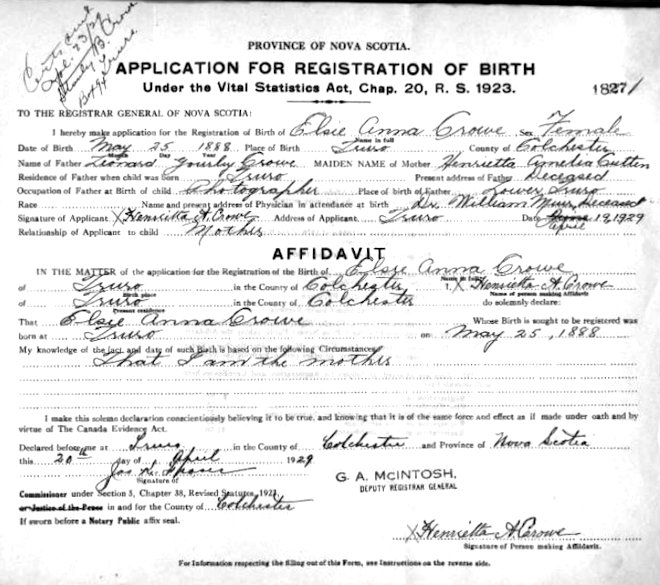 Apl. 23/29
Stanley B. Crowe
Box
Truro
PROVINCE OF NOVA SCOTIA.
APPLICATION FOR REGISTRATION OF BIRTH
Under the Vital Statistics Act, Chap. 20, R. S. 1923.
18271
TO THE REGISTRAR GENERAL OF NOVA SCOTIA:
I hereby make application for the Registration of Birth of Elsie Anna Crowe Sex Female
Name in full
Date of Birth May 25 1888 Place of Birth Truro County of Colchester
Month Day Year
Name of Father Gourley Crowe MAIDEN NAME of Mother Henrietta Amelia Cutten
Residence of Father when child was born Truro Present address of Father Deceased
Occupation of Father at Birth of child Photographer Place of birth of Father Lower Truro
Race Name and present address of Physician in attendance at birth Dr. William Muir, Deceased
Signature of Applicant X Henrietta A. Crowe Address of Applicant Truro Date April 19, 1929
Relationship of Applicant to child Mother
AFFIDAVIT
IN THE MATTER of the application for the Registration of the Birth of Elsie Anna Crowe
of Truro in the County of Colchester I, X Henrietta A. Crowe
Birth place Name in full
of Truro in the County of Colchester do solemnly declare:
Present residence Name of Person making Affidavit
That Elsie Anna Crowe Whose Birth is sought to be registered was
born at Truro on May 25, 1888
My knowledge of the fact and date of such Birth is based on the following Circumstances
That I am the mother
I make this solemn declaration conscientiously believing it to be true, and knowing that it is of the same force and effect as if made under oath and by
virtue of The Canada Evidence Act.
Declared before me at Truro in the County of Colchester and Province of Nova Scotia
this 20th day of April 1929
Jas. Fraser
Signature of
G. A. McINTOSH,
DEPUTY REGISTRAR GENERAL
Commissioner under Section 5, Chapter 38, Revised Statutes, 1923,
or Justice of the Peace in and for the County of Colchester
If sworn before a Notary Public affix seal.
X Henrietta A. Crowe
Signature of Person making Affidavit.
For Information respecting the filling out of this Form, see Instructions on the reverse side.